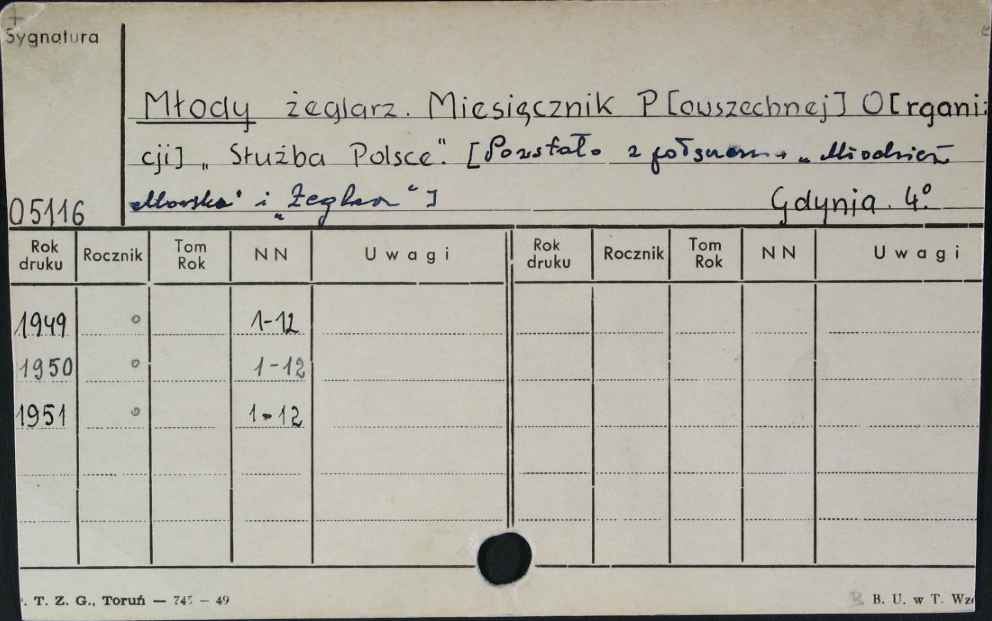 Sygnatura
Młody żeglarz. Miesięcznik P[owszechnej] O[rgani
cji] „Służba Polsce". [Powstało z połączenia „Młodzież
Morska" i „Żeglarz"]
05116
Gdynia. 4°
Rok druku Rocznik Tom Rok NN Uwagi Rok druku Rocznik Tom Rok NN Uwagi
1949 ° 1-12
1950 ° 1-12
1951 ° 1-12
T. Z. G., Toruń — 745 — 49
B. U. w T. Wz